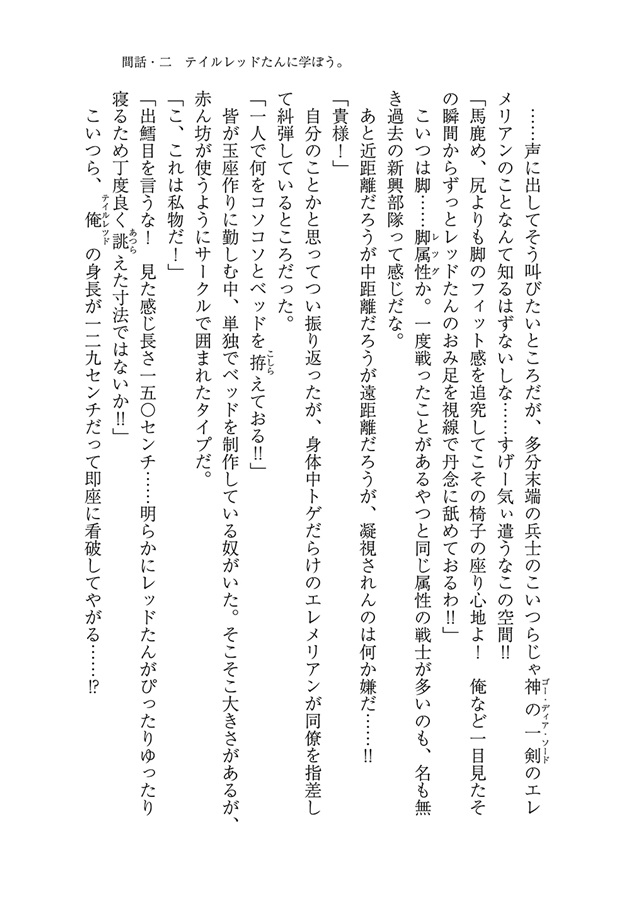 間話・二　テイルレッドたんに学ぼう。
……声に出してそう叫びたいところだが、多分末端の兵士のこいつらじゃ神の一剣のエレ
ゴー・ディア・ソード
メリアンのことなんて知るはずないしな……すげー気ぃ遣うなこの空間!!
「馬鹿め、尻よりも脚のフィット感を追究してこその椅子の座り心地よ！　俺など一目見たそ
の瞬間からずっとレッドたんのおみ足を視線で丹念に舐めておるわ!!」
こいつは脚……脚属性か。一度戦ったことがあるやつと同じ属性の戦士が多いのも、名も無
レッグ
き過去の新興部隊って感じだな。
あと近距離だろうが中距離だろうが遠距離だろうが、凝視されんのは何か嫌だ……!!
「貴様！」
自分のことかと思ってつい振り返ったが、身体中トゲだらけのエレメリアンが同僚を指差し
て糾弾しているところだった。
「一人で何をコソコソとベッドを拵えておる!!」
こしら
皆が玉座作りに勤しむ中、単独でベッドを制作している奴がいた。そこそこ大きさがあるが、
赤ん坊が使うようにサークルで囲まれたタイプだ。
「こ、これは私物だ！」
「出鱈目を言うな！　見た感じ長さ一五〇センチ……明らかにレッドたんがぴったりゆったり
寝るため丁度良く誂えた寸法ではないか!!」
あつら
こいつら、俺の身長が一二九センチだって即座に看破してやがる……!?
テイルレッド